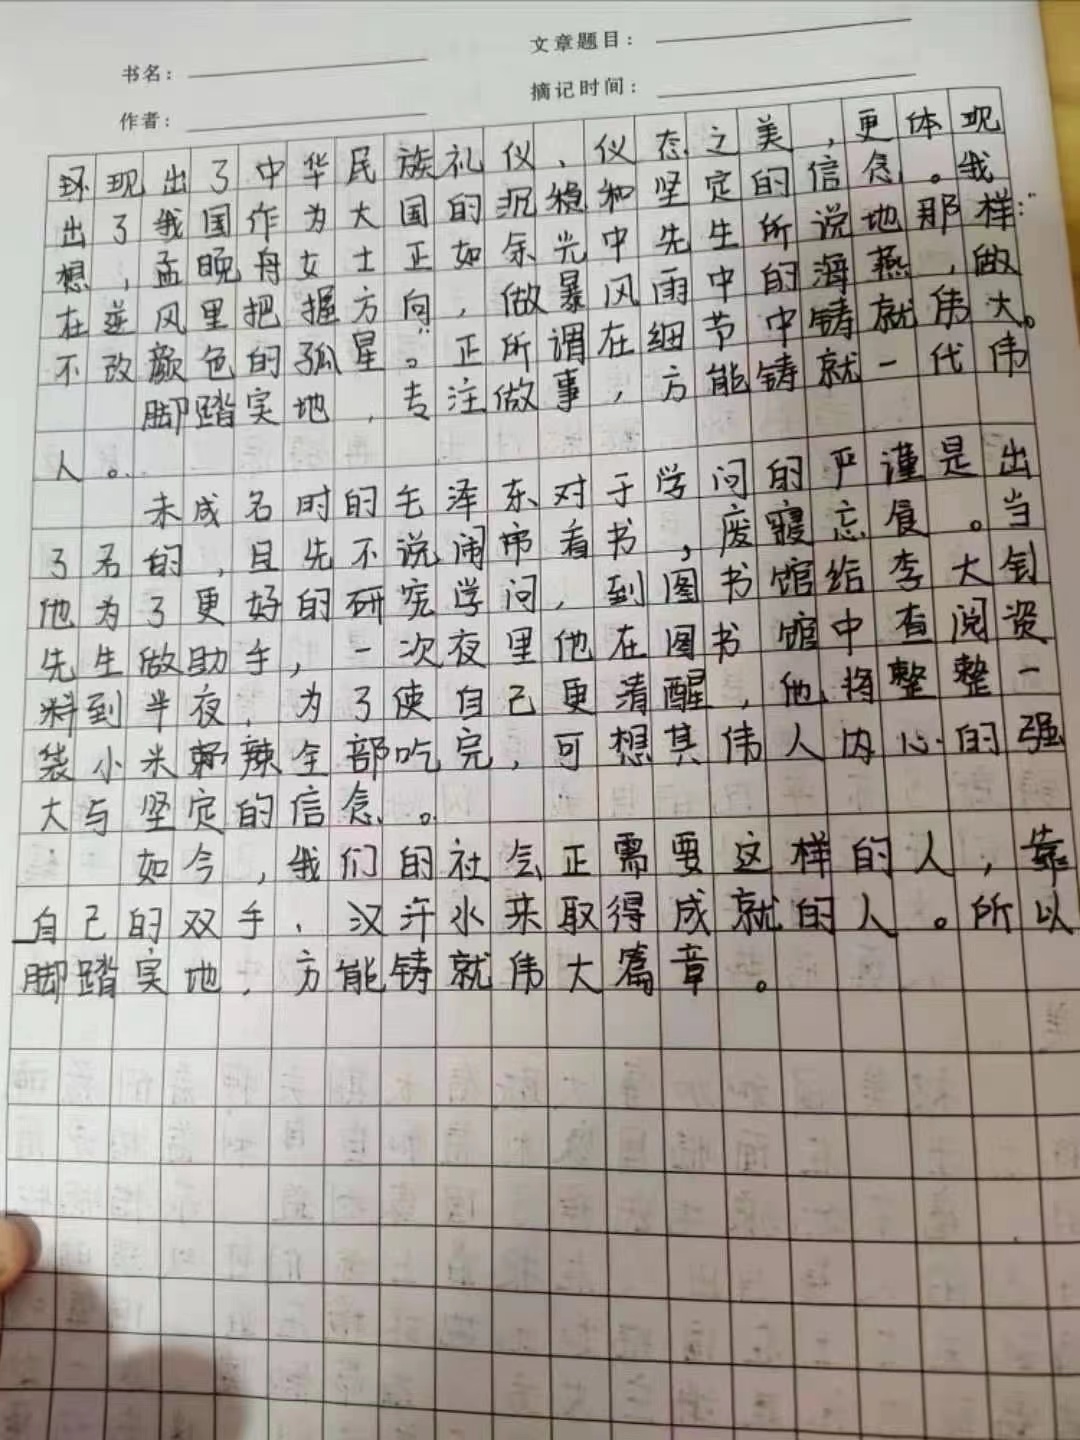 书名：
文章题目：
作者：
摘记时间：
环现出了中华民族礼仪、仪态之美，更体现
出了我国作为大国的沉稳和坚定的信念。我
想，孟晚舟女士正如余光中先生所说地那样：“
在逆风里把握方向，做暴风雨中的海燕，做
不改颜色的孤星。”正所谓在细节中铸就伟大。
脚踏实地，专注做事，方能铸就一代伟
人。
未成名时的毛泽东对于学问的严谨是出
了名的，且先不说闹市看书，废寝忘食。当
他为了更好的研究学问，到图书馆给李大钊
先生做助手，一次夜里他在图书馆中查阅资
料到半夜，为了使自己更清醒，他将整整一
袋小米辣辣全部吃完，可想其伟人内心的强
大与坚定的信念。
如今，我们的社会正需要这样的人，靠
自己的双手、汉汗水来取得成就的人。所以
脚踏实地，方能铸就伟大篇章。